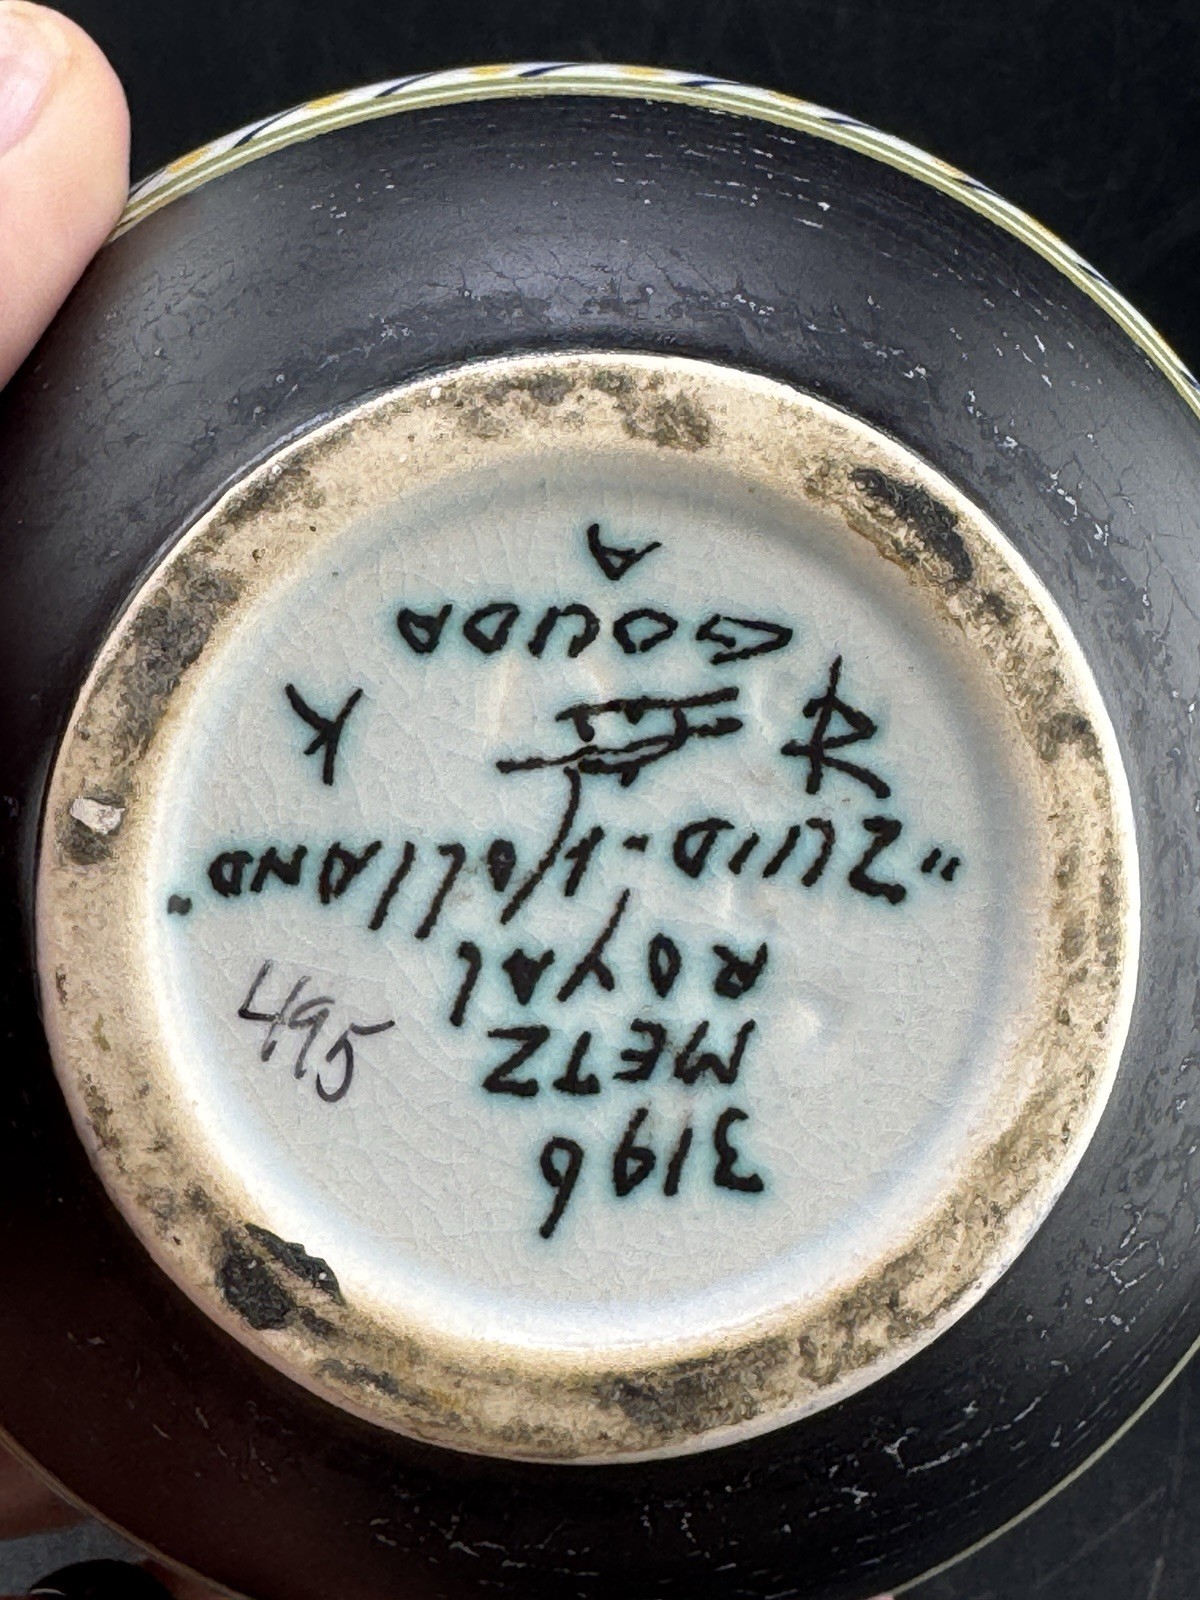 3196
METZ
ROYAL
"ZUID-HOLLAND"
K
GOUDA
A
495